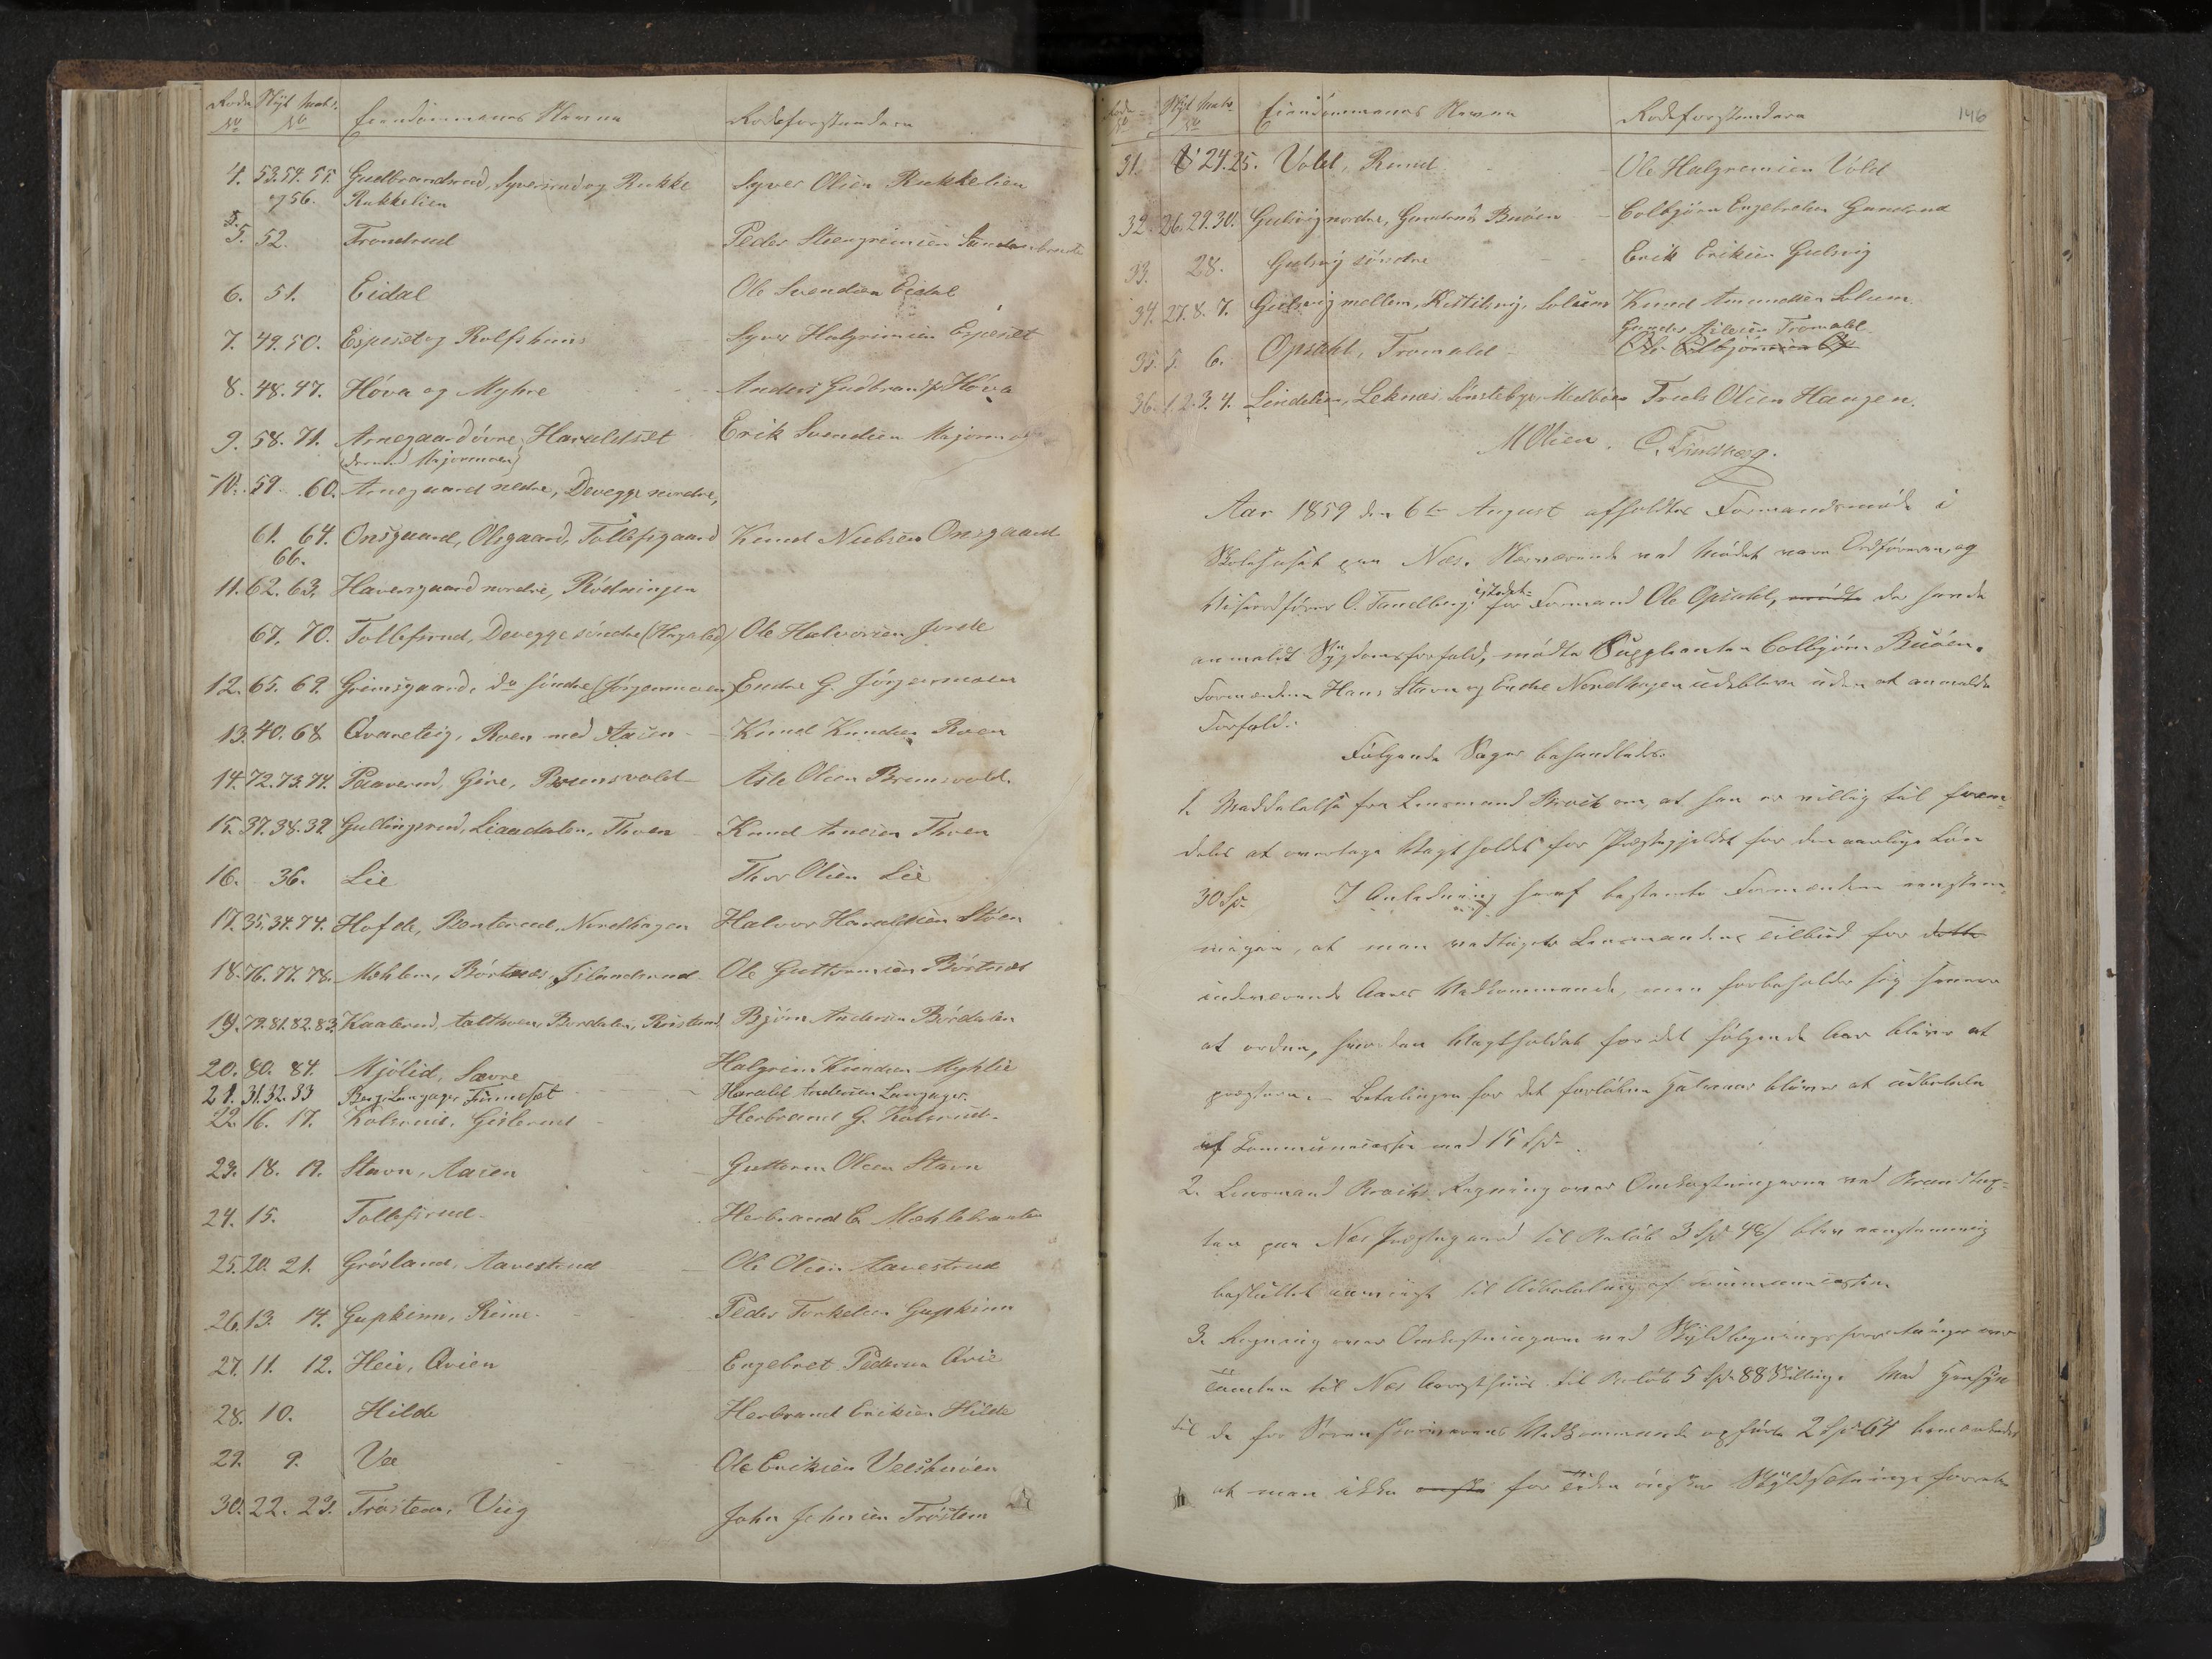 Rode No Nyt Matr. No Eiendommenes Navne Rodeforstandere
4. 53.54.55. Gudbrandsrud, Syversrud og Rukke Syver Olsen Rukkelien
og 56. Rukkelien
5. 52. Trondrud Peder Steengrimsen
6. 51. Eidal Ole Svendsen Eidal
7. 49.50. Esperset og Rolfshuus Syver Halgrimsen Esperset
8. 48.47. Höva og Myhre Anders Gudbrands. Höva
9. 58.71. Arnegaard övre, Haraldset Erik Svendsen Majormoen
Majormoen)
10. 59. 60. Arnegaard nedre, Devegge nordre,
61. 64. Onsgaard, Olsgaard, Tollefsgaard Knud Nielsen Onsgaard
66.
11. 62.63. Haversgaard nordre, Rödningen
67. 70. Tollefsrud, Devegge söndre Ole Halvorsen Jorde
12. 65. 69. Grimsgaard, do söndre (Jörgenmoen) Endre G. Jörgenmoen
13. 40. 68 Qvareteig, Roen med Aasen Knud Knudsen Roen
14. 72.73.74. Paaverud, Gire, Bruunsvold Asle Olsen Brunsvold.
15. 37.38.39 Gullingsrud, Liaadalen, Thoen Knud Arnesen Thoen
16. 36. Lie Thor Olsen Lie
17. 35.34.74. Hofde, Bonterud, Nordhagen Halvor Haraldsen Stöen
18. 76.77.78. Mehlen, Börtnæs, Jilandsrud Ole Guttormsen Börtnæs
19. 79.81.82.83. Kaaterud, Aalthoen, Bordalen, Rustand Björn Andersen Bördalen
20. 80. 84. Mjölid, Sævre Halgrim Knudsen Myhlie
21. 31.32.33 Berg, Langager, Finneset Harald Andersen Langager.
22. 16. 17. Kolsrud, Gislerud Herbrand G. Kolsrud.
23. 18. 19. Stavn, Aasen Guttorm Olsen Stavn
24. 15. Tollefsrud Herbrand E. Mehlebraaten
25. 20. 21. Grösland, Aavestrud Ole Olsen Aavestrud
26. 13. 14. Gupkinn, Rime. Peder Torkelsen Gupkinn
27. 11. 12. Hei, Qvien Engebret Pedersen Qvie
28. 10. Hilde Herbrand Eriksen Hilde
29. 9. Vee Ole Eriksen Veeshuöen
30. 22. 23. Tröstem, Viig John Johnsen Tröstem
Rode No Nyt Matr. No Eiendommenes Navne Rodeforstandere 146
31. 24.25. Vold, Rund Ole Halgremsen Vold
32. 26.29.30. Gulsvig nordre, Gundrud Buöen Colbjörn Engebretsen Gundrud
33. 28. Gulsvig söndre Erik Eriksen Gulsvig
34. 27.8.7. Gulsvig mellem, Kittilsvig, Solum Knud Amundsen Solum.
Gunder Aslesen Tromald
35. 5. 6. Opsahl, Tromald Ole Colbjörnsen
36. 1.2.3.4. Lindelien, Leknæs, Sönsteby, Medbøen Truls Olsen Haugen.
M Olsen. O. Tandberg.
Aar 1859 den 6te August afholdtes Formandsmøde i
Skolehuset paa Næs. Nærværende ved Mødet vare Ordføreren, og
Viceordfører O. Tandberg. istedet for Formand Ole Opsahl, mødte der havde
anmeldt Sygdomsforfald, mødte Suppleanten Colbjörn Buöen.
Formændene Hans Stavn og Endre Nordhagen udebleve uden at anmelde
Forfald.
Følgende Sager behandledes:
1. Meddelelse fra Lensmand om, at han er villig til frem-
deles at overtage Vagtholdet for Præstegjeldet for den aarlige Løn
30 Spd. I Anledning heraf bestemte Formændene eenstem-
migen, at man vedtager Lensmandens Tilbud for dette
indeværende Aars Vedkommende, men forbeholder sig senere
at ordne, hvordan Vagtholdet for det følgende Aar bliver at
præstere. Betalingen for det forløbne Halvaar bliver at udbetale
af Communecassen med 15 Spd.
2. Lensmand Regning over Omkostningerne ved Brandtax-
ten paa Næs Præstegaard til Beløb 3 Spd 48 s blev eenstemmig
besluttet til Udbetaling af Communecassen
3. Regning over Omkostningerne ved Skyldlægningsforretninger over
Tomten til Næs Arresthuus til Beløb 5 Spd 88 Skilling. Med Hensyn
til de for Sorenskriverens Vedkommende opførte 2 Spd 64 bemærkedes
at man ikke for Tiden ønsker Skyldsætningsforret-